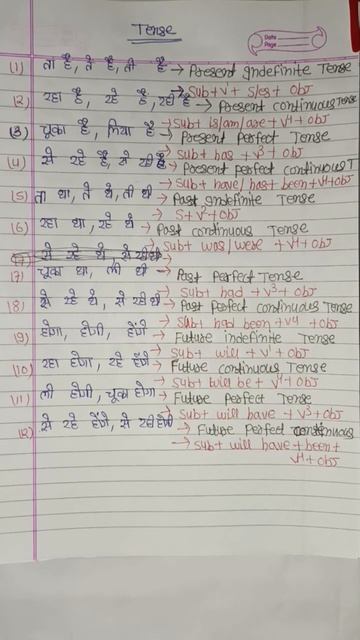 Tense
Date
Page
(1) ता है, ते है, ती है → Present Indefinite Tense
→ Sub + V¹ + s/es + obj
(2) रहा है, रहे है, रही है → Present continuous Tense
→ Sub + is/am/are + V⁴ + obj
(3) चूका है, लिया है → Present Perfect Tense
→ Sub + has + V³ + obj
(4) से रहे है, से रही है → Present perfect continuous T
→ Sub + have/has + been + V⁴ + obj
(5) ता था, ते थे, ती थी → Past Indefinite Tense
→ S + V² + obj
(6) रहा था, रहे थे → Past continuous Tense
→ Sub + was/were + V⁴ + obj
(7) से रहे थे, से रही थी
(7) चूका था, ली थी → Past Perfect Tense
→ Sub + had + V³ + obj
(8) से रहे थे, से रही थी → Past Perfect continuous Tense
→ Sub + had been + V4 + obj
(9) होगा, होगी, होंगे → Future indefinite Tense
→ Sub + will + V¹ + obj
(10) रहा होगा, रहे होंगे → Future continuous Tense
→ Sub + will be + V⁴ + obj
(11) ली होगी, चूका होगा → Future Perfect Tense
→ Sub + will have + V³ + obj
(12) से रहे होंगे, से रही होगी → Future Perfect continuous
→ Sub + will have + been +
V⁴ + obj